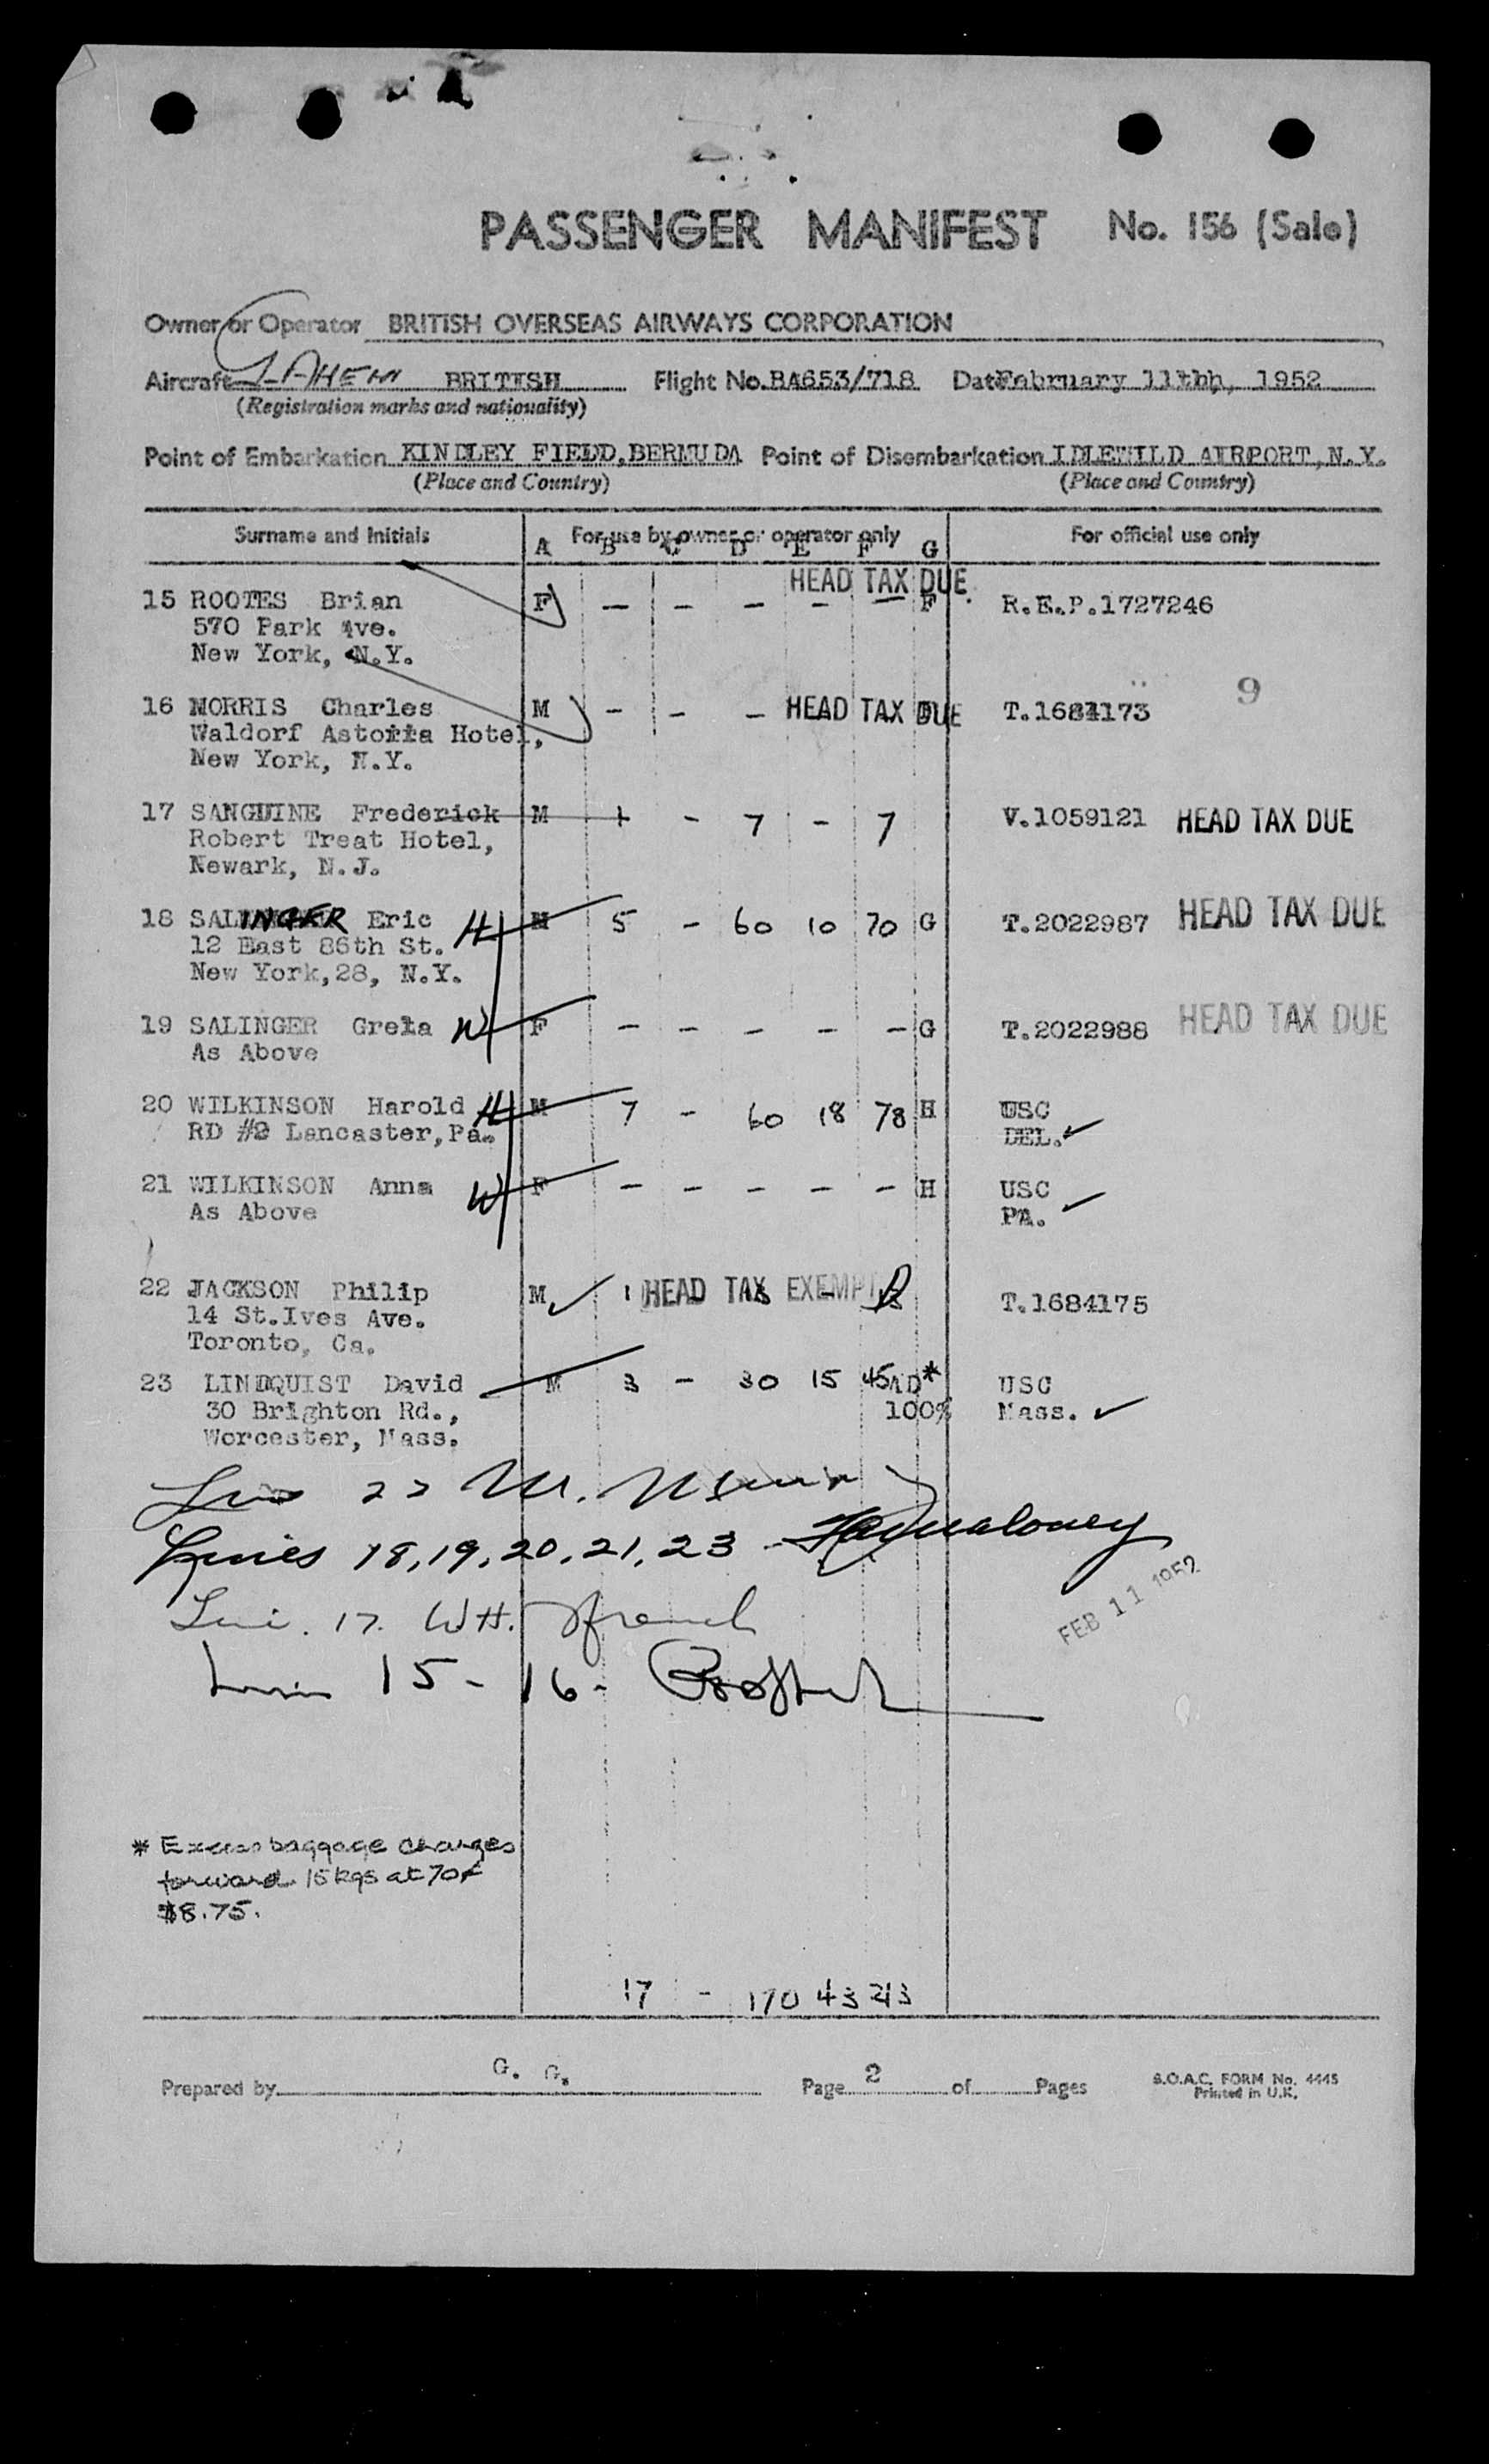 PASSENGER MANIFEST No. 156 (Sale)
Owner or Operator BRITISH OVERSEAS AIRWAYS CORPORATION
Aircraft BRITISH Flight No. BA653/718 Date February 11th, 1952
(Registration marks and nationality)
Point of Embarkation KINDLEY FIELD, BERMUDA Point of Disembarkation IDLEWILD AIRPORT, N.Y.
(Place and Country) (Place and Country)
Surname and Initials For use by owner or operator only For official use only
A B C D E F G
HEAD TAX DUE
15 ROOTES Brian F - - - - - F R.E.P.1727246
570 Park Ave.
New York, N.Y.
9
16 NORRIS Charles M - - - HEAD TAX DUE T.1684173
Waldorf Astoria Hotel,
New York, N.Y.
17 SANGUINE Frederick M 1 - 7 - 7 V.1059121 HEAD TAX DUE
Robert Treat Hotel,
Newark, N.J.
18 SALINGER Eric H M 5 - 60 10 70 G T.2022987 HEAD TAX DUE
12 East 86th St.
New York,28, N.Y.
19 SALINGER Greta W F - - - - - G T.2022988 HEAD TAX DUE
As Above
20 WILKINSON Harold H M 7 - 60 18 78 H USC
RD #2 Lancaster,Pa. DEL.✓
21 WILKINSON Anna W F - - - - - H USC
As Above PA. ✓
22 JACKSON Philip M ✓ 1 HEAD TAX EXEMPT T.1684175
14 St.Ives Ave.
Toronto, Ca.
23 LINDQUIST David M 3 - 30 15 45 AD* USC
30 Brighton Rd., 100% Mass. ✓
Worcester, Mass.
22 M.
Lines 18,19,20,21,23 -
FEB 11 1952
17. WH. French
15 - 16 -
* Excess baggage charges
forward 15 kgs at 70¢
$8.75.
17 - 170 43 213
Prepared by G. G. Page 2 of Pages B.O.A.C. FORM No. 4445
Printed in U.K.